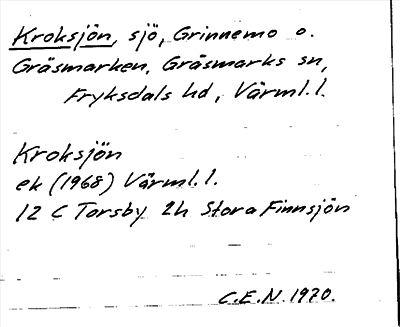 Kroksjön, sjö, Grinnemo o.
Gräsmarken, Gräsmarks sn,
Fryksdals hd, Värml. l.
Kroksjön
ek (1968) Värml. l.
12 C Torsby 2h Stora Finnsjön
C.E.N. 1970.